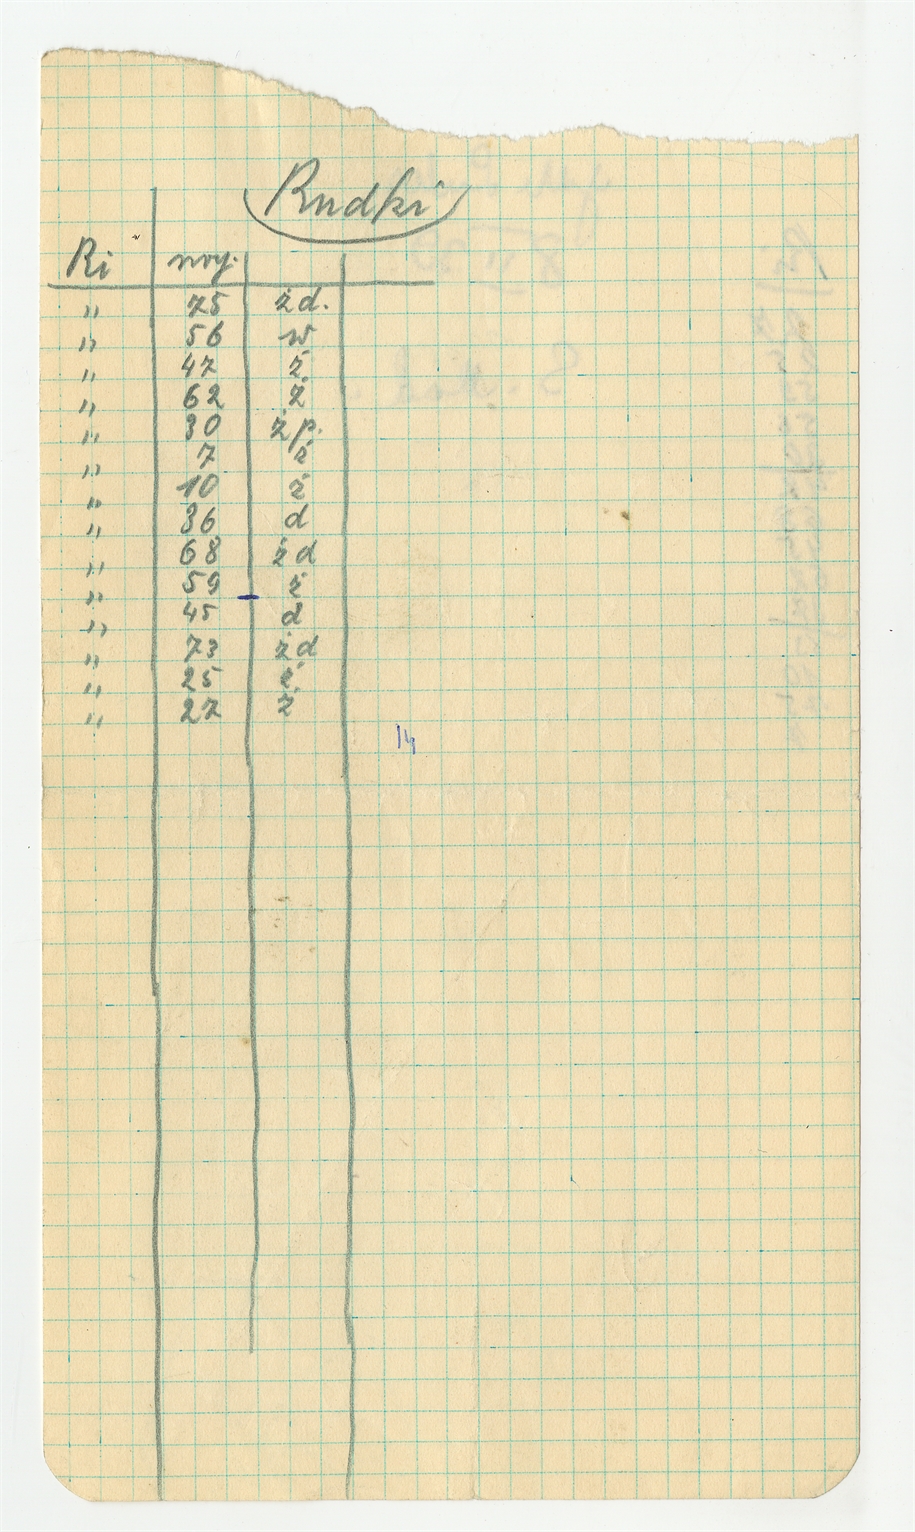 Rudki
Ri woj.
" 75 żd.
" 56 w
" 47 ż
" 62 ż
" 30 żp.
" 7 ż
" 10 ż
" 36 d
" 68 żd
" 59 ż
" 45 d
" 73 żd
" 25 ż
" 27 ż
14